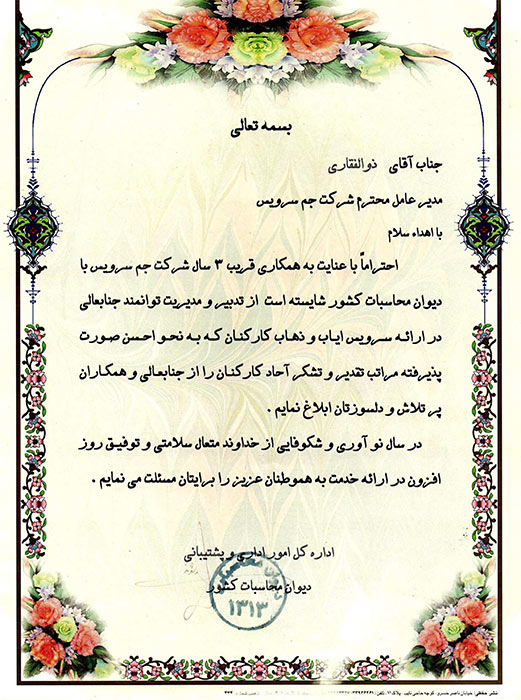 بسمه تعالی
جناب آقای ذوالفقاری
مدیر عامل محترم شرکت جم سرویس
با اهداء سلام
احتراماً با عنایت به همکاری قریب ۳ سال شرکت جم سرویس با
دیوان محاسبات کشور شایسته است از تدبیر و مدیریت توانمند جنابعالی
در ارائه سرویس ایاب و ذهاب کارکنان که به نحو احسن صورت
پذیرفته مراتب تقدیر و تشکر آحاد کارکنان را از جنابعالی و همکاران
پر تلاش و دلسوزتان ابلاغ نمایم .
در سال نو آوری و شکوفایی از خداوند متعال سلامتی و توفیق روز
افزون در ارائه خدمت به هموطنان عزیز را برایتان مسئلت می نمایم .
اداره کل امور اداری و پشتیبانی
دیوان محاسبات کشور
۱۳۱۳